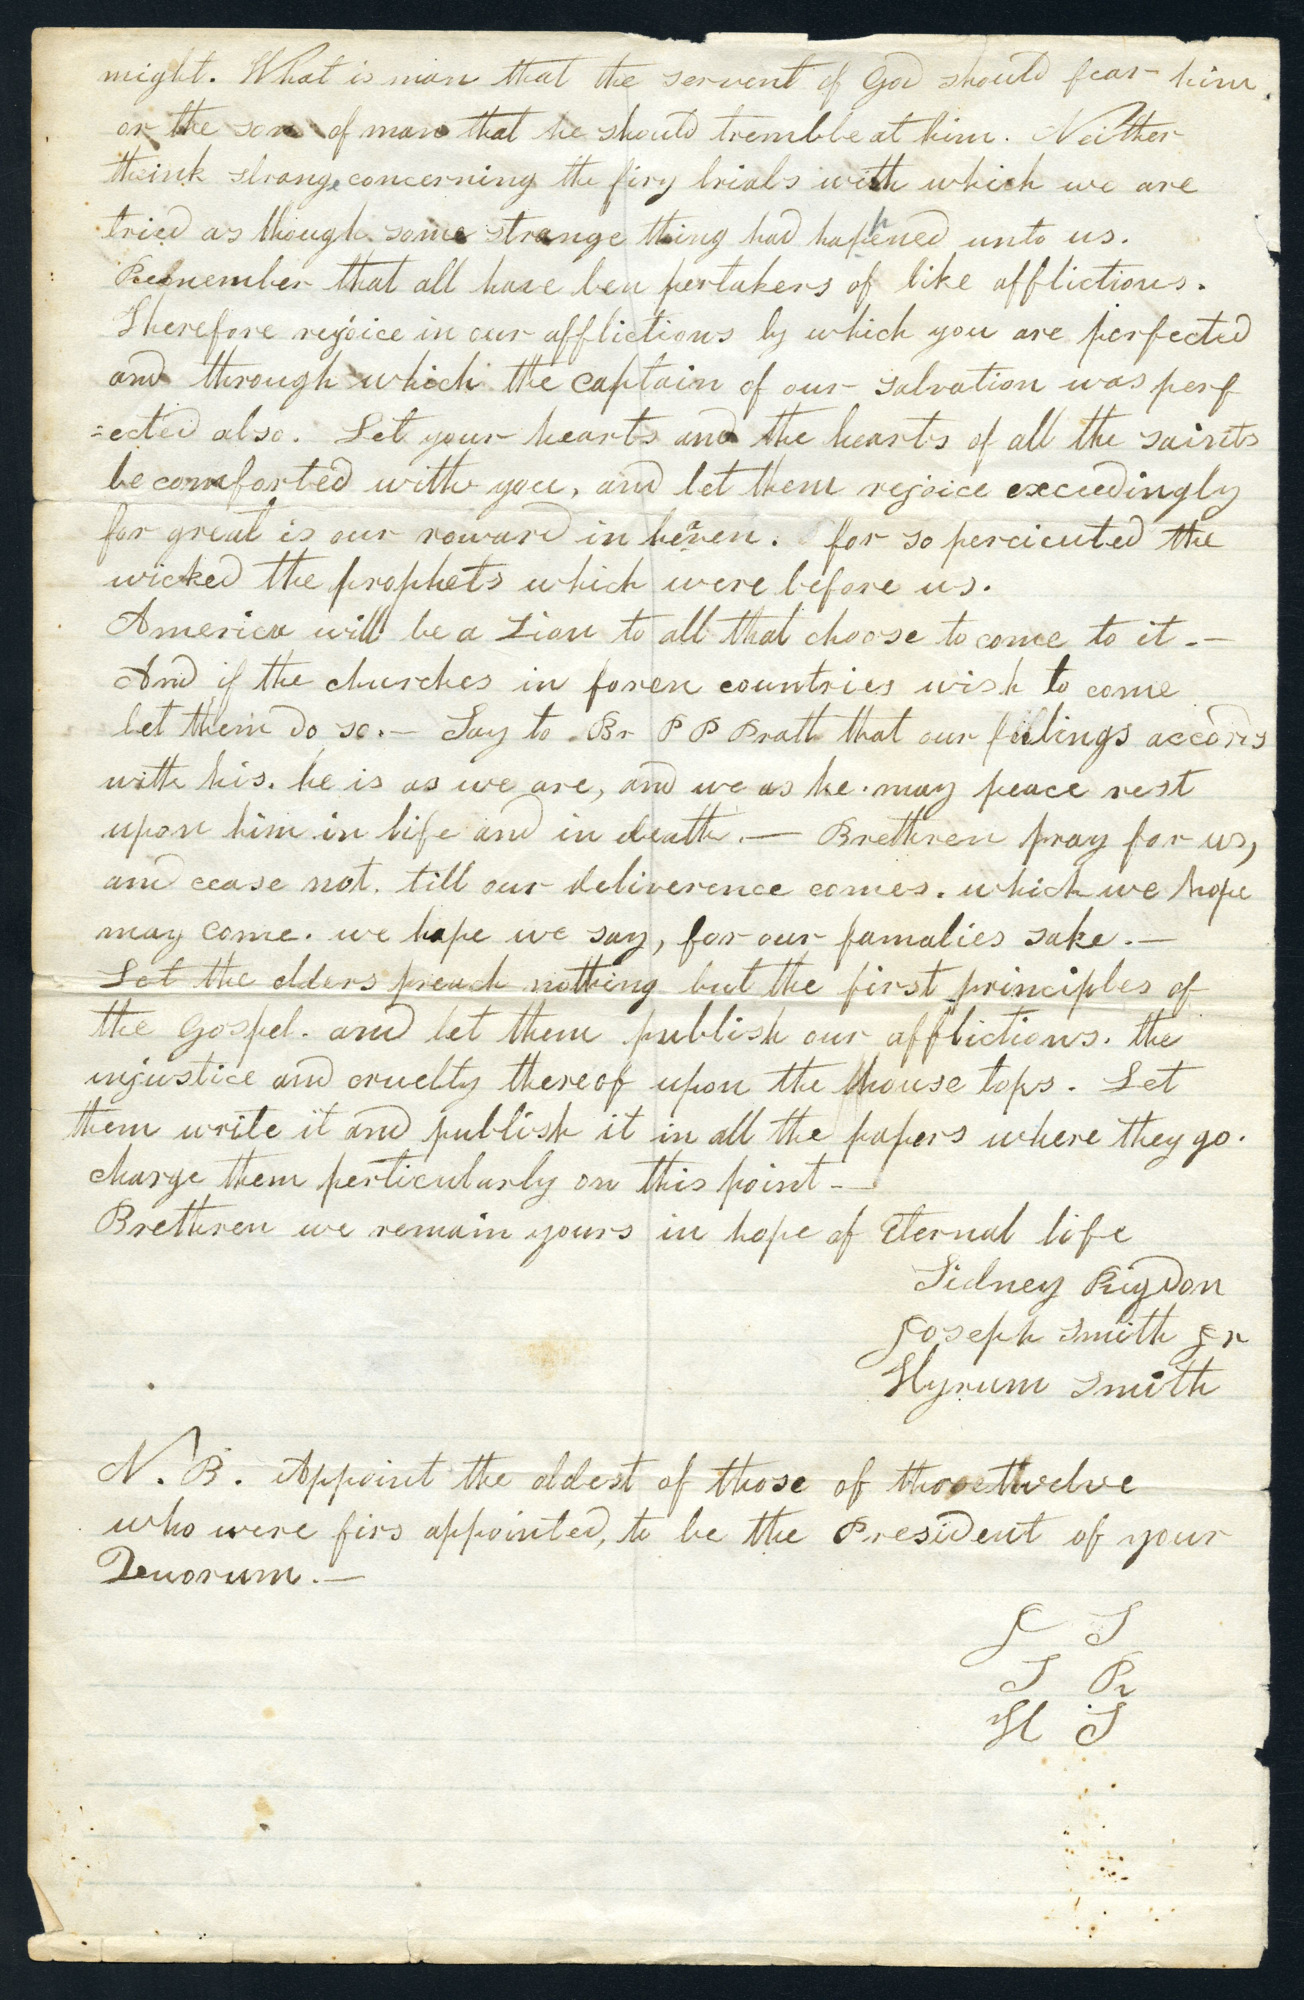 might. What is man that the servent of God should fear him
or the son of man that he should tremble at him. Neither
theink strange concerning the firy trials with which we are
tried as though some strange thing had haphened unto us.
Remember that all have ben pertakers of like afflictions.
Therefore rejoice in our afflictions by which you are perfected
and through which the captain of our salvation was perf
=ected also. Let your hearts and the hearts of all the saints
be comforted with you, and let them rejoice exceedingly
for great is our reward in heaven. for so percicuted the
wicked the prophets which were before us.
America will be a Zion to all that choose to come to it.—
And if the churches in foren countries wish to come
let them do so.— Say to Br P P Pratt that our feelings accords
with his. he is as we are, and we as he. may peace rest
upon him in life and in death.— Brethren pray for us,
and cease not. till our deliverence comes. which we hope
may come. we hope we say, for our famalies sake.—
Let the elders preach nothing but the first principles of
the Gospel. and let them publish our afflictions. the
injustice and cruelty thereof upon the house tops. Let
them write it and publish it in all the papers where they go.
charge them perticularly on this point—
Brethren we remain yours in hope of Eternal life
Sidney Rigdon
Joseph Smith Jr
Hyrum Smith
N. B. Appoint the oldest of those of those twelve
who were firs appointed, to be the President of your
Quorum.—
J S
S R
H S